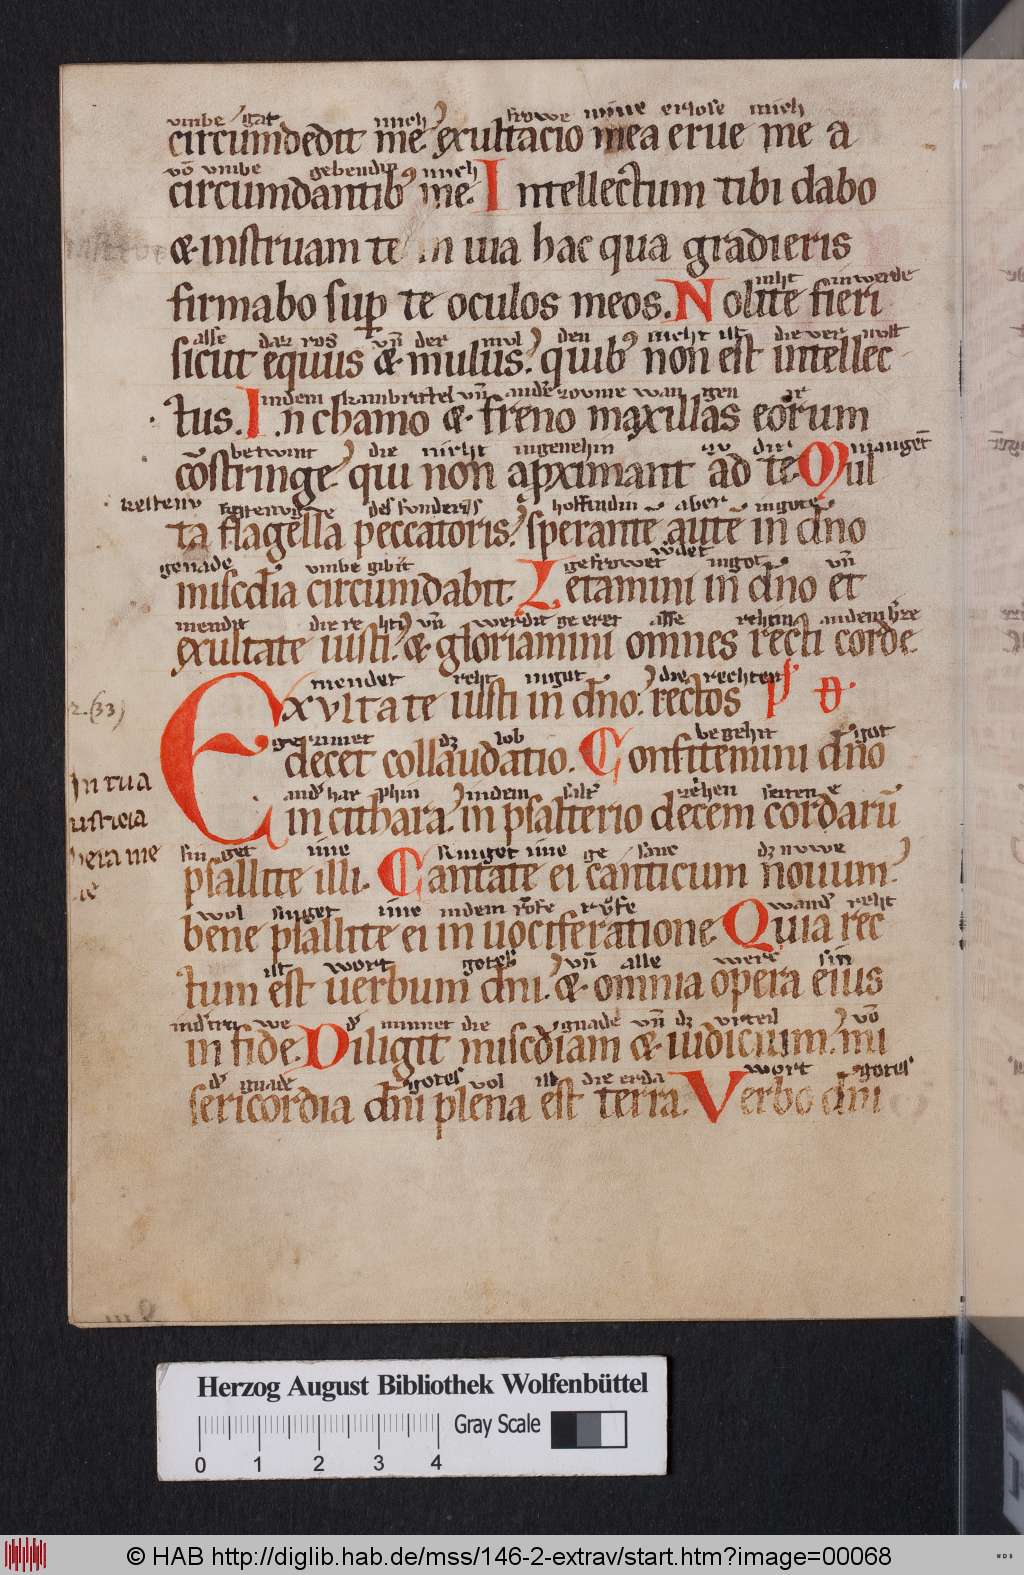 vmbe gat mich frowe mine erlose mich
circumdedit me. exultacio mea erue me a
vō vmbe gebendin mich
circumdantib9 me. Intellectum tibi dabo
& instruam te in uia hac qua gradieris
niht inwerde
firmabo sup te oculos meos. Nolite fieri
alse daz ros vn̄ der mul den nicht ist die ver nust
sicut equus & mulus. quib9 non est intellec
indem kambrittel vn̄ zovme wan gen
tus. In chamo & freno maxillas eorum
betwint die nicht ingenehin zv die manget
cōstringe. qui non apximant ad te. Mul
kestenv des sunders hoffindin aber ingote
ta flagella peccatoris. sperante autē in dn̄o
genade vmbe gibit gefrowet ingot vn̄
miscdia circumdabit. Letamini in dn̄o et
mendit die rehti vn̄ werdit ge eret alse rehtin
exultate iusti. & gloriamini omnes recti corde
mendet reht ingut die rechten
Exultate iusti in dn̄o. rectos ps đ.
2. (33)
gezimet dz lob begehit got
decet collaudatio. Confitemini dn̄o
In tua
and har phin indem salt zehen seiten
in cithara. in psalterio decem cordarū
iusticia
sin get ime singet ime ge sane dz nuwe
psallite illi. Cantate ei canticum nouum.
libera me
wol singet ime indem
bene psallite ei in uociferatione. Quia rec
wand reht
ist wort gotes vn̄ alle werc sin
tum est uerbum dn̄i. & omnia opera eius
we minnet die gnade vn̄ dz vrteil vō
in fide. Diligit miscdiam & iudicium. mi
gnade gotes vol ist die erda wort gotes
sericordia dn̄i plena est terra. Verbo dn̄i
Herzog August Bibliothek Wolfenbüttel
Gray Scale
0 1 2 3 4
© HAB http://diglib.hab.de/mss/146-2-extrav/start.htm?image=00068